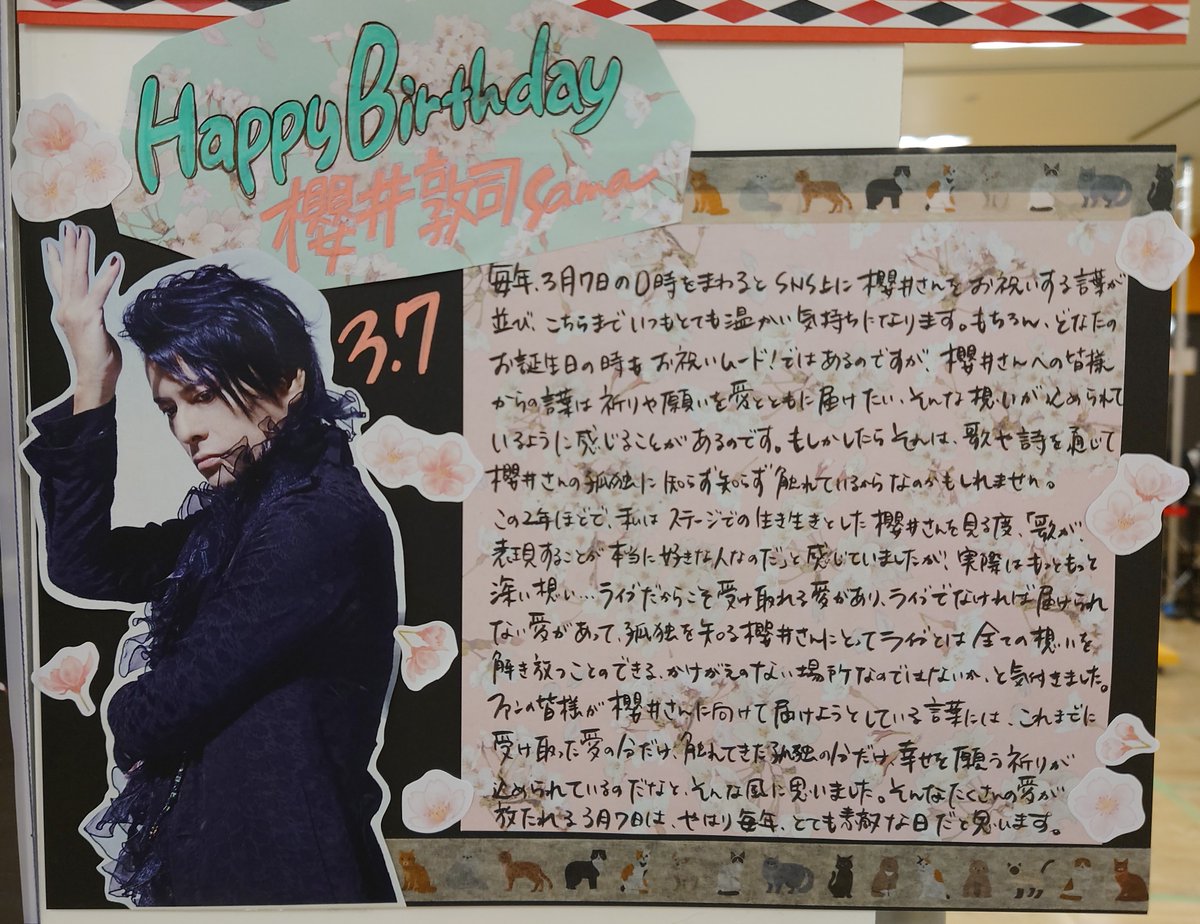 Happy Birthday
櫻井敦司sama
3.7
毎年、3月7日の0時をまわるとSNS上に櫻井さんをお祝いする言葉が
並び、こちらまでいつもとても温かい気持ちになります。もちろん、どなたの
お誕生日の時もお祝いムード!ではあるのですが、櫻井さんへの皆様
からの言葉は祈りや願いを愛とともに届けたい、そんな想いが込められて
いるように感じることがあるのです。もしかしたらそれは、歌や詩を通じて
櫻井さんの孤独に知らず知らず触れているからなのかもしれません。
この2年ほどで、私はステージでの生き生きとした櫻井さんを見る度、「歌が、
表現することが本当に好きな人なのだ」と感じていましたが、実際はもっともっと
深い想い…ライブだからこそ受け取れる愛があり、ライブでなければ届けられ
ない愛があって、孤独を知る櫻井さんにとってライブとは全ての想いを
解き放つことのできる、かけがえのない場所なのではないか、と気付きました。
ファンの皆様が櫻井さんに向けて届けようとしている言葉には、これまでに
受け取った愛の分だけ、触れてきた孤独の分だけ、幸せを願う祈りが
込められているのだなと、そんな風に思いました。そんなたくさんの愛が
放たれる3月7日は、やはり毎年、とても素敵な日だと思います。